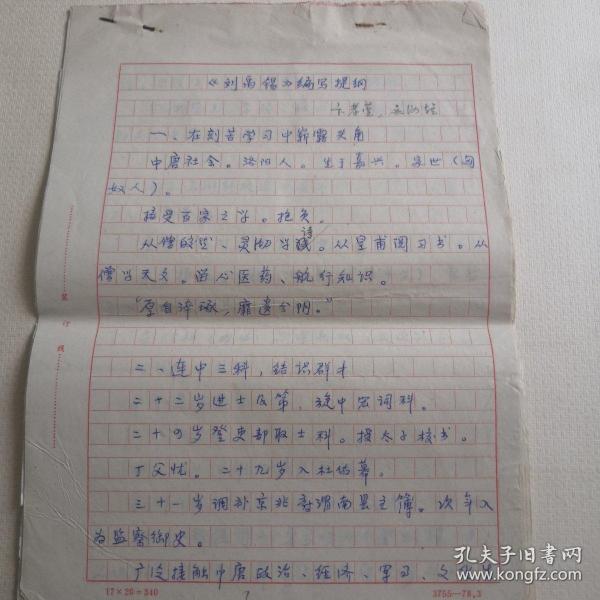 《刘禹锡》编写提纲
卞孝萱、
一、在刻苦学习中崭露头角
中唐社会。洛阳人。生于嘉兴。家世（匈
奴人）。
接受百家之学。抱负。
从僧皎然、灵澈学诗。从皇甫阅习书。从
僧学天文。留心医药、航行知识。
"厚自淬琢，靡遗分阴。"
二、连中三科，结识群才
二十二岁进士及第，旋中宏词科。
二十四岁登吏部取士科。授太子校书。
丁父忧。二十九岁入杜佑幕。
三十一岁调补京兆府渭南县主簿。次年入
为监察御史。
广泛接触中唐政治、经济、军事、文化
装
订
线
17×20=340
3755—78.3
孔夫子旧书网
www.kongfz.com